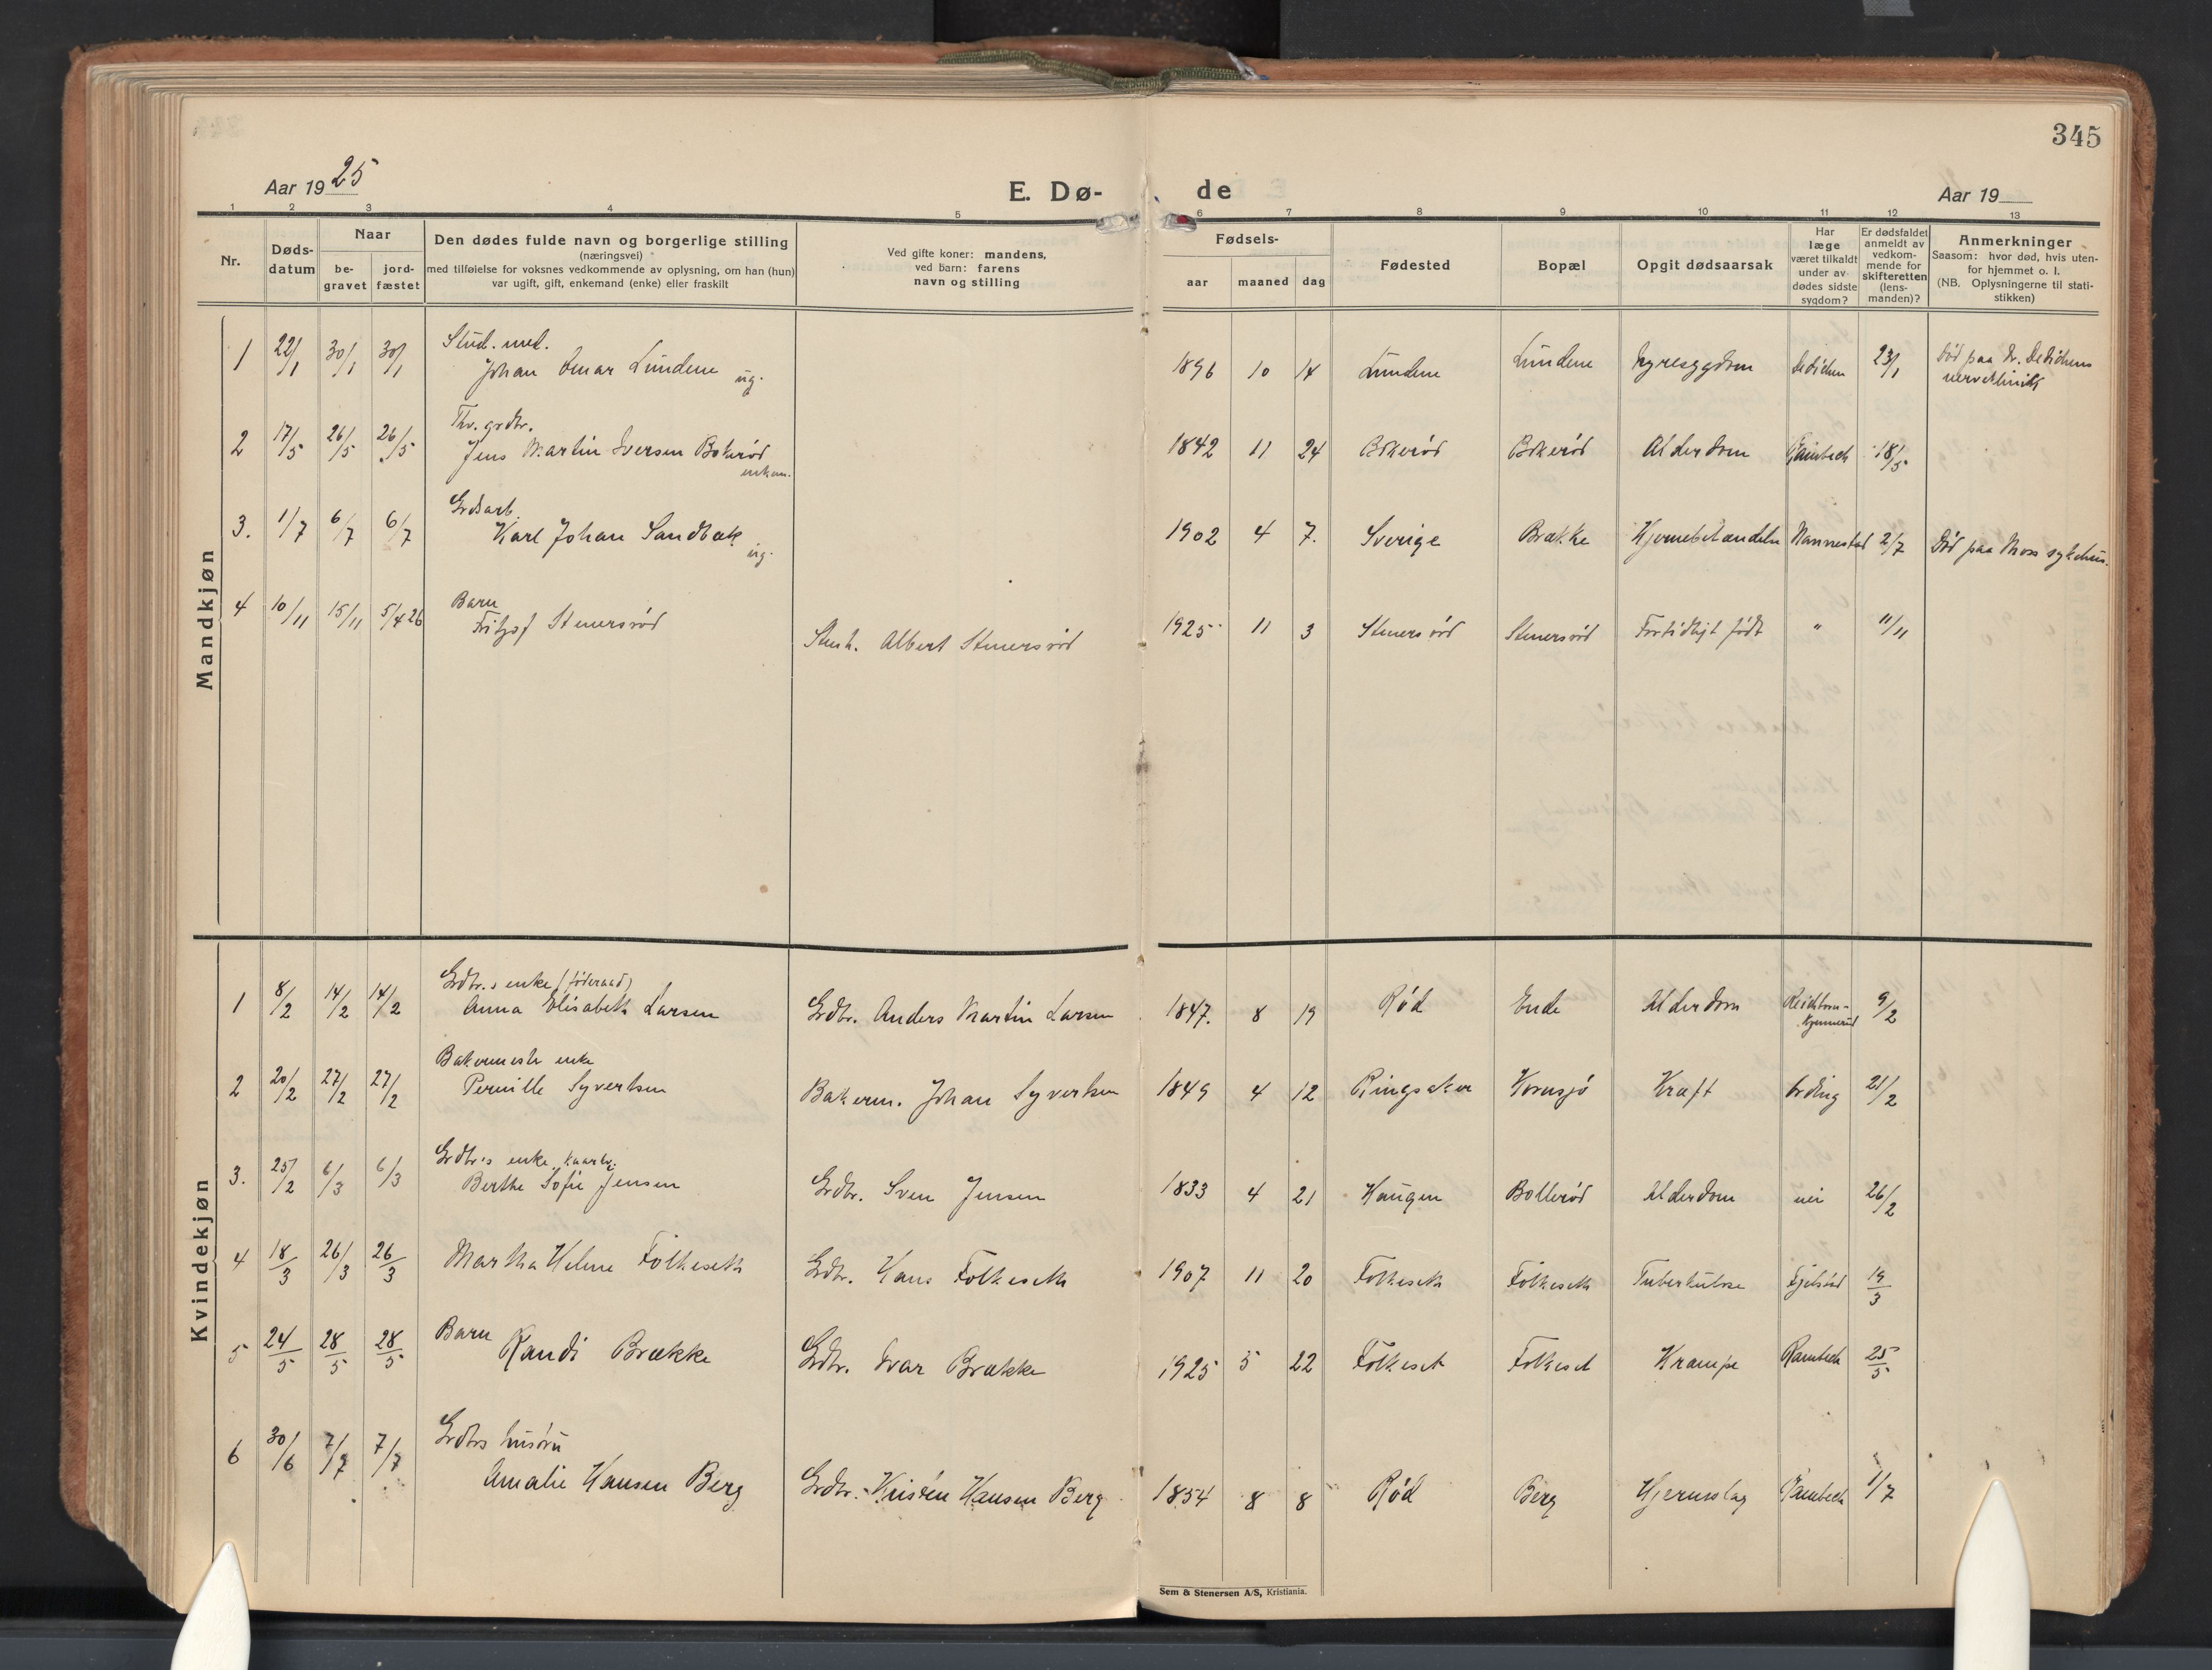 345
Aar 1925
E. Dø-
de
Aar 19
1 2 3 4 5 6 7 8 9 10 11 12 13
Nr.
Døds-
datum
Naar
be-
gravet
jord-
fæstet
Den dødes fulde navn og borgerlige stilling
(næringsvei)
med tilføielse for voksnes vedkommende av oplysning, om han (hun)
var ugift, gift, enkemand (enke) eller fraskilt
Ved gifte koner: mandens,
ved barn: farens
navn og stilling
Fødsels-
aar
maaned
dag
Fødested
Bopæl
Opgit dødsaarsak
Har
læge
været tilkaldt
under av-
dødes sidste
sygdom?
Er dødsfaldet
anmeldt av
vedkom-
mende for
skifteretten
(lens-
manden)?
Anmerkninger
Saasom: hvor død, hvis uten-
for hjemmet o. l.
(NB. Oplysningerne til stati-
stikken)
Mandkjøn
Stud. med.
1 22/1 30/1 30/1 Johan Lundene ug. 1896 10 14 Lundene Lundene Nyresygdom Dedichen 23/1 Død paa Dr. Dedichens
nerveklinik
grdbr.
2 17/5 26/5 26/5 Jens Martin Iversen Bokerød 1842 11 24 Bokerød Bokerød Alderdom Rambech 18/5
enkem.
Grdsarb.
3. 1/7 6/7 6/7 Karl Johan Sandbæk ug. 1902 4 7. Sverige Brække Hjernebetændelse Nannestad 2/7 Død paa Moss sykehus.
Barn
4 10/11 15/11 5/4 26 Fritjof Stenersrød Albert Stenersrød 1925 11 3 Stenersrød Stenersrød Fortidligt født " 11/11
Kvindekjøn
Grdbr.s enke (føderaad)
1 8/2 14/2 14/2 Anna Elisabeth Larsen Grdbr. Anders Martin Larsen 1847. 8 19 Rød Ende Alderdom 9/2
Bakermestr enke
2 20/2 27/2 27/2 Pernille Syvertsen Bakerm. Johan Syvertsen 1849 4 12 Ringsaker Kornsjø Kræft Ording 21/2
Grdbr.s enke, kaark.
3. 25/2 6/3 6/3 Berthe Sofie Jensen Grdbr. Sven Jensen 1833 4 21 Haugen Bollerød Alderdom nei 26/2
4 18/3 26/3 26/3 Martha Helene Folkeseth Grdbr. Hans Folkeseth 1907 11 20 Folkeseth Folkeseth Tuberkulose 19/3
5 24/5 28/5 28/5 Barn Randi Brække Grdbr. Ivar Brække 1925 5 22 Folkeset Folkeset Krampe Rambech 25/5
Grdbrs husfru
6 30/6 7/7 7/7 Amalie Hansen Berg Grdbr. Hansen Berg 1854 8 8 Rød Berg Hjerneslag Rambech 1/7
Sem & Stenersen A/S, Kristiania.